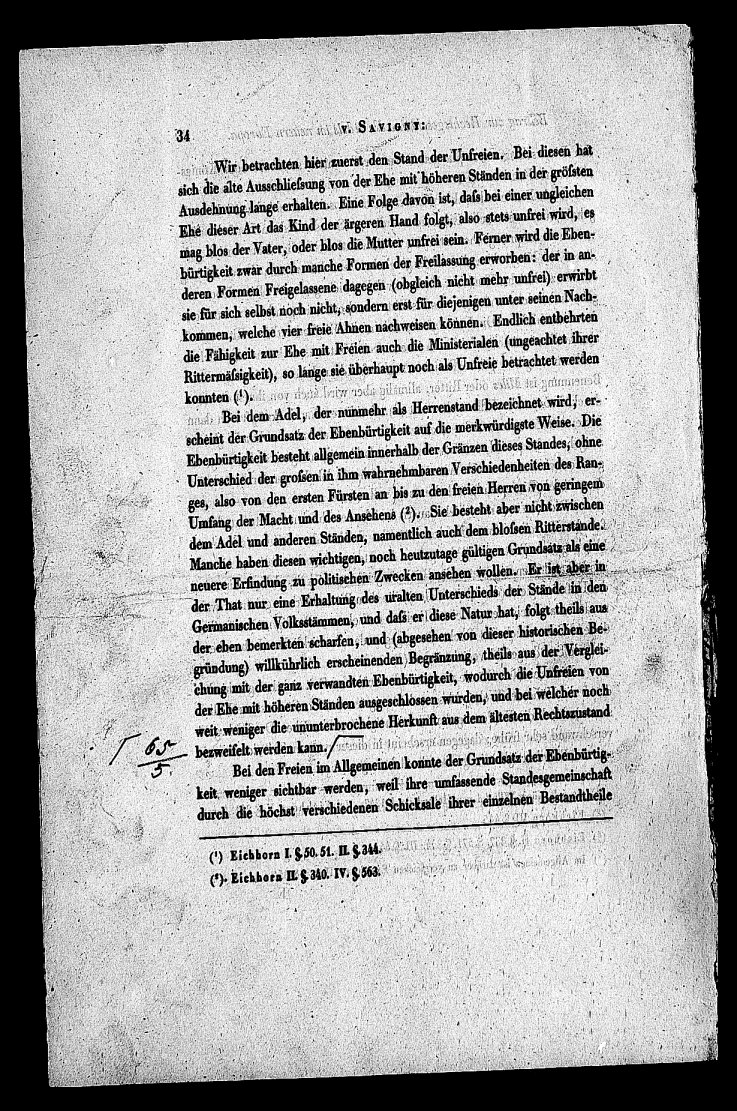 34
v. SAVIGNY:
Wir betrachten hier zuerst den Stand der Unfreien. Bei diesen hat
sich die alte Ausschließung von der Ehe mit höheren Ständen in der größten
Ausdehnung lange erhalten. Eine Folge davon ist, daß bei einer ungleichen
Ehe dieser Art das Kind der ärgeren Hand folgt, also stets unfrei wird, es
mag blos der Vater, oder blos die Mutter unfrei sein. Ferner wird die Eben-
bürtigkeit zwar durch manche Formen der Freilassung erworben: der in an-
deren Formen Freigelassene dagegen (obgleich nicht mehr unfrei) erwirbt
sie für sich selbst noch nicht, sondern erst für diejenigen unter seinen Nach-
kommen, welche vier freie Ahnen nachweisen können. Endlich entbehrten
die Fähigkeit zur Ehe mit Freien auch die Ministerialen (ungeachtet ihrer
Rittermäßigkeit), so lange sie überhaupt noch als Unfreie betrachtet werden
konnten (¹).
Bei dem Adel, der nunmehr als Herrenstand bezeichnet wird, er-
scheint der Grundsatz der Ebenbürtigkeit auf die merkwürdigste Weise. Die
Ebenbürtigkeit besteht allgemein innerhalb der Gränzen dieses Standes, ohne
Unterschied der großen in ihm wahrnehmbaren Verschiedenheiten des Ran-
ges, also von den ersten Fürsten an bis zu den freien Herren von geringem
Umfang der Macht und des Ansehens (²). Sie besteht aber nicht zwischen
dem Adel und anderen Ständen, namentlich auch dem bloßen Ritterstande.
Manche haben diesen wichtigen, noch heutzutage gültigen Grundsatz als eine
neuere Erfindung zu politischen Zwecken ansehen wollen. Er ist aber in
der That nur eine Erhaltung des uralten Unterschieds der Stände in den
Germanischen Volksstämmen, und daß er diese Natur hat, folgt theils aus
der eben bemerkten scharfen, und (abgesehen von dieser historischen Be-
gründung) willkührlich erscheinenden Begränzung, theils aus der Verglei-
chung mit der ganz verwandten Ebenbürtigkeit, wodurch die Unfreien von
der Ehe mit höheren Ständen ausgeschlossen wurden, und bei welcher noch
weit weniger die ununterbrochene Herkunft aus dem ältesten Rechtszustand
bezweifelt werden kann.
65
5.
Bei den Freien im Allgemeinen konnte der Grundsatz der Ebenbürtig-
keit weniger sichtbar werden, weil ihre umfassende Standesgemeinschaft
durch die höchst verschiedenen Schicksale ihrer einzelnen Bestandtheile
(¹) Eichhorn I. §. 50. 51. II. §. 344.
(²) Eichhorn II. §. 340. IV. §. 563.